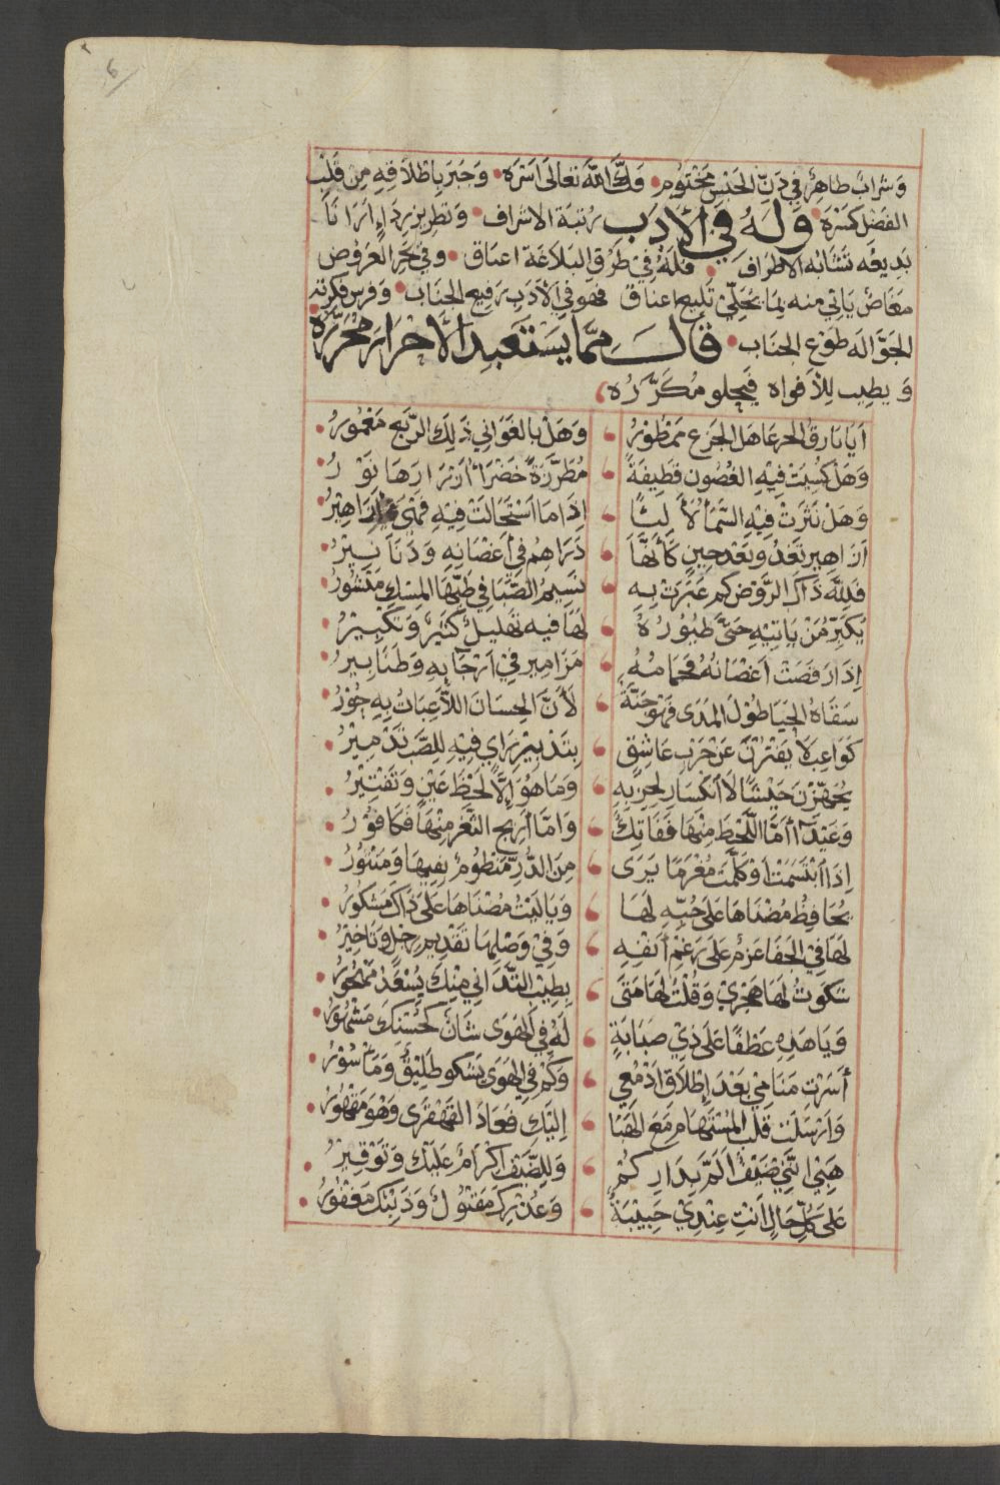 وَشَرابٌ طاهِرٌ في دَنِّ الحَبسِ مَختومٌ • فَكَّ اللّٰه تعالى اَسْرَه • وَجَبَرَ باِطْلاقِهِ مِن قَلْبِ
الفَضل كسْرَه • وَلَهُ فِي الأَدَبِ رُتبَة الاشراف • وَتَطرِيزُ رِدَاءٍ اِرَانَا
بَديعُه تَشَابُه الاطْرَاف • فَلَهُ في طُرُقِ البَلاغَة اعناق • وفي بَحرِ العَرُوض
مَغَاصٌ يَاتي منه بِمَا يُحَلّي تَلِيعَ اعناق فهو في الاَدَبِ رَفيع الجناب • وَفَرسُ فِكرَتِه
الجَوّالَه طَوْع الجناب • قالَ مِمَّا يَسْتَعبِدُ الأَحْرَارَ مُحَرَّرُه
وَيطِيب لِلأفواه فَيَحلو مُكَرَّرُه
أيَا بَارِقُ الجَرعَا هَل الجَزع مَمْطُورُ • وَهَلْ بالغَوَاني ذَلِكَ الرَّبع مَعْمُورُ
وَهَلْ كُسِيَتْ فيْهِ الغُصُون قَطِيفَةً • مُطَرَّزَةً خَضْرَاءُ أزْرَارَهَا نَوْرُ
وَهَلْ نَثَرَتْ فيْهِ السَّمَآءُ لآلِئًا • اِذَا مَا اسْتَحَالَتْ فِيْهِ فَهْيَ اَزَاهِيْرُ
اَزَاهِيرُ تَغدُو بَعْدَ حِينٍ كَأنَّهَا • دَرَاهِمُ في أغصَانِهِ وَدَنَانِيْرُ
فَلِلّٰهِ ذَاكَ الرَّوْضُ كم عَبَرَتْ بِهِ • نَسِيمُ الصَّبَا في طَيِّهَا المِسْكُ مَنْشُورُ
يُكَبِّرُ مَنْ يَاتِيْهِ حَتَّى طُيُورُهُ • لهَا فيه تَهْلِيلٌ كَثِيرٌ وَتَكْبِيْرُ
اِذَا رَقَصَتْ أغْصَانُهُ فَحَمَامُهُ • مَزَامِير في اَرْجَآئِهِ وَطَنَابِيرُ
سَقَاهُ الحَيَا طُوْلَ المَدَى فَهْوَ جَنَّةٌ • لأَنَّ الحِسَانَ اللاَّعِبَاتِ بِهِ حُوْرُ
كَوَاعِبُ لاَ يَفتُرْنَ عَنْ حَرْبِ عَاشِقٍ • بِتَدْبِيْرِ رَايٍ فيْهِ لِلصَّبِّ تَدْمِيْرُ
يُجَهِّزْنَ جَيْشًا لاَ انكِسَار لِحِزْبِهِ • وَمَا هُوَ اِلاَّ لَحْظُ عَيْنٍ وَتَفْتِيْرُ
وَغَيْدَآءُ أَمَّا اللَّحْظُ مِنْهَا فَفَاتِكٌ • وَامَّا أرِيْجُ الثَّغْرِ مِنْهَا فَكَافُوْرُ
اِذَا ابْتَسَمَتْ أَوْ كَلَّمَتْ مُغْرَمًا يَرَى • مِنَ الدُّرِّ مَنْظُومٌ بِفِيهَا وَمَنْثُوْرُ
يُحَافِظُ مُضْنَاهَا عَلَى حُبِّهِ لَهَا • وَيَا لَيْتَ مُضْنَاهَا عَلَى ذَاكَ مَشْكُورُ
لهَا في الجَفَا عَزمٌ عَلَى رَغْمِ أنْفِهِ • وَفي وَصْلِهَا تَقْدِيمُ رِجْلٍ وَتَاخِيْرُ
شَكَوتُ لهَا هَجْرِيْ وَقُلْتُ لهَا مَتَى • بِطِيْبِ التَّدَاني مِنْكِ يُسْعَدُ مَهْجُورُ
وَيَا هَذِهِ عَطْفًا عَلَى ذِيْ صَبَابَةٍ • لَهُ في الهَوَى شَانٌ كَحُسْنِكِ مَشْهُوْرُ
أسَرْتِ مَنَامي بَعْدَ اِطْلاَقِ اَدْمُعي • وَكَمْ في الهَوَى يَشكو طَلِيْقٌ وَمَاْسُوْرُ
وَاَرْسَلَتِ قَلْبَ المُسْتَهَامِ مَعَ الصَّبَا • اِلَيْكِ فَعَادَ القَهْقَرَى وَهْوَ مَقْهُورُ
هَبِيْ انَّنِي ضَيْفٌ اَلَمَّ بِدَارِكُمْ • وَلِلضَّيْفِ اكْرَامٌ عَلَيْكِ وَتَوْقِيرُ
عَلَى كُلِّ حَالٍ اَنْتِ عِنْدِيْ حَبِيْبَةٌ • وَعُذْرُكِ مَقْبُولٌ وَذَنْبُكِ مَغْفُورُ